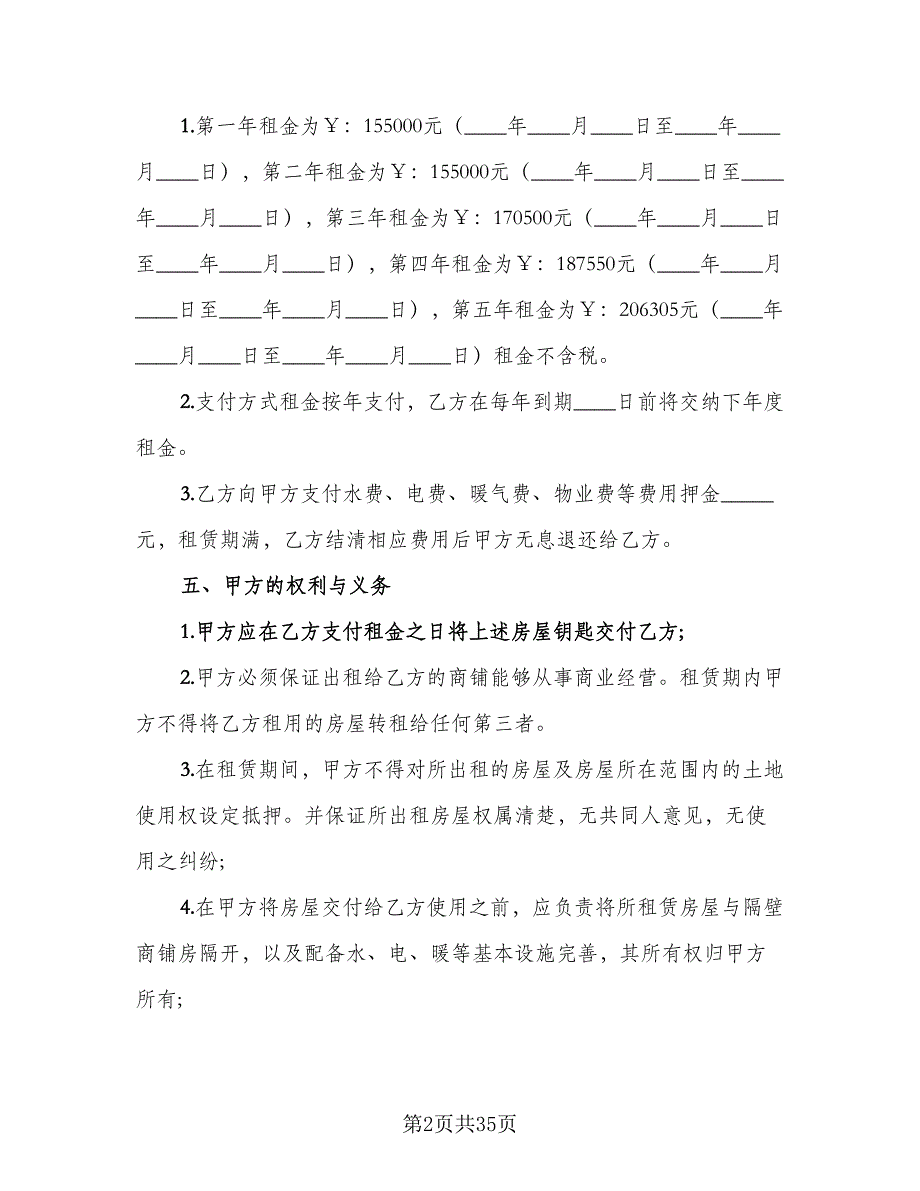 1.第一年租金为￥：155000元（____年____月____日至____年____
月____日），第二年租金为￥：155000元（____年____月____日至____
年____月____日），第三年租金为￥：170500元（____年____月____日
至____年____月____日），第四年租金为￥：187550元（____年____月
____日至____年____月____日），第五年租金为￥：206305元（____年
____月____日至____年____月____日）租金不含税。
2.支付方式租金按年支付，乙方在每年到期____日前将交纳下年度
租金。
3.乙方向甲方支付水费、电费、暖气费、物业费等费用押金_____
元，租赁期满，乙方结清相应费用后甲方无息退还给乙方。
五、甲方的权利与义务
1.甲方应在乙方支付租金之日将上述房屋钥匙交付乙方;
2.甲方必须保证出租给乙方的商铺能够从事商业经营。租赁期内甲
方不得将乙方租用的房屋转租给任何第三者。
3.在租赁期间，甲方不得对所出租的房屋及房屋所在范围内的土地
使用权设定抵押。并保证所出租房屋权属清楚，无共同人意见，无使
用之纠纷;
4.在甲方将房屋交付给乙方使用之前，应负责将所租赁房屋与隔壁
商铺房隔开，以及配备水、电、暖等基本设施完善，其所有权归甲方
所有;
第2页共35页